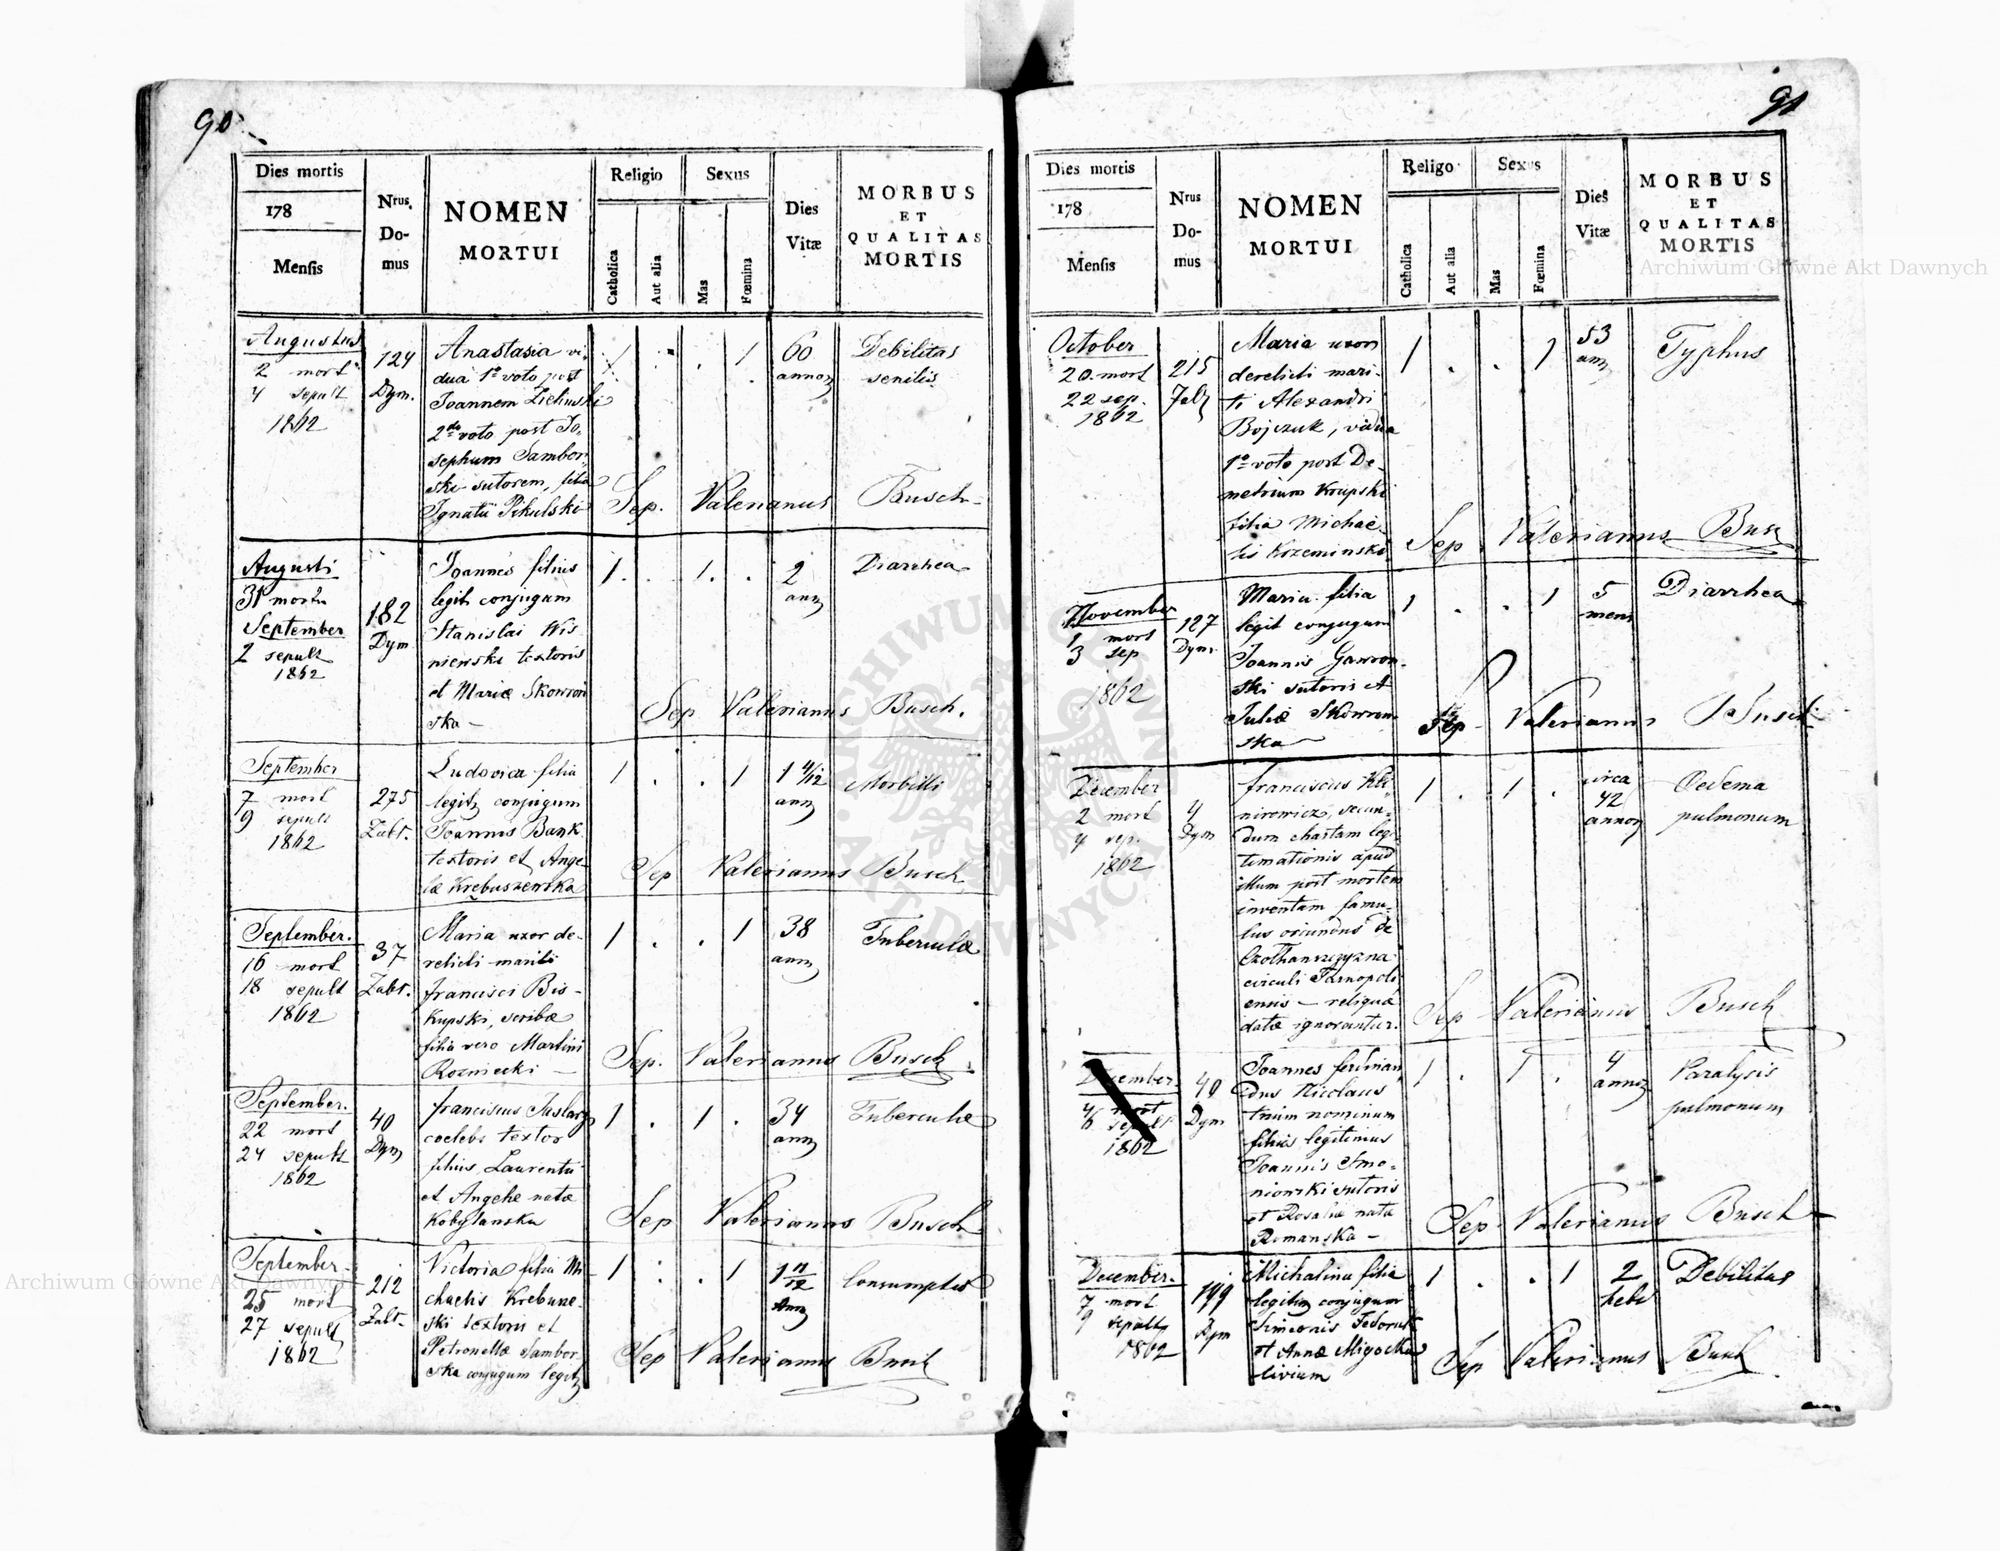 90
Dies mortis
178
Mensis
Nrus.
Do-
mus
NOMEN
MORTUI
Religio
Catholica
Aut alia
Sexus
Mas
Fœmina
Dies
Vitæ
MORBUS
ET
QUALITAS
MORTIS
Augustus
2 mort
4 sepult
1862
124
Dym.
Anastasia vi-
dua 1º voto post
Joannem Zielinski
2do voto post Jo-
sephum Sambor-
ski sutorem, filia
Ignatii Pikulski
1 . . 1
60
annor
Debilitas
senilis
Sep. Valerianus Busch
Augusti
31 mort
September
2 sepult
1862
182
Dym
Joannes filius
legit conjugum
Stanislai Wis-
niewski textoris
et Mariæ Skowron
ska
1 . 1 .
2
ann
Diarrhea
Sep Valerianus Busch.
September
7 mort
9 sepult
1862
275
Zabt.
Ludovica filia
legit conjugum
Joannis Bank
textoris et Ange
læ Krebuszewska
1 . . 1
1 4/12
ann
Morbilli
Sep Valerianus Busch
September.
16 mort
18 sepult
1862
37
Zabt.
Maria uxor de-
relicti mariti
Francisci Bis-
kupski, scribæ
filia vero Martini
Rozniecki
1 . . 1
38
ann
Tuberculæ
Sep. Valerianus Busch
September.
22 mort
24 sepult
1862
40
Dym
Franciscus
coelebs textor
filius Laurentii
et Angelæ natæ
Kobylanska
1 . 1 .
34
ann
Tuberculæ
Sep Valerianus Busch
September.
25 mort
27 sepult
1862
212
Zabt.
Victoria filia Mi
chaelis Krebusze-
ski textoris et
Petronellæ Sambor
ska conjugum legit
1 . . 1
1 11/12
Ann
Consumptio
Sep Valerianus Busch
91
Dies mortis
178
Mensis
Nrus
Do-
mus
NOMEN
MORTUI
Religo
Catholica
Aut alia
Sexus
Mas
Fœmina
Dies
Vitæ
MORBUS
ET
QUALITAS
MORTIS
October
20 mort
22 sep.
1862
215
Maria uxor
derelicti mari-
ti Alexandri
Bojczuk, vidua
1º voto post De-
metrium Krupski
filia Michae-
lis Krzeminski
1 . . 1
53
ann
Typhus
Sep Valerianus Busch
November
1 mort
3 sep
1862
127
Dym
Maria filia
legit conjugum
Joannis Gawron-
ski sutoris et
Juliæ Skowron
ska
1 . . 1
5
mens
Diarrhea
Sep Valerianus Busch
December
2 mort
4 sep.
1862
4
Dym
Franciscus Kli-
nirewicz, secun-
dum chartam legi-
timationis apud
illum post mortem
inventam famu-
lus oriundus de
circuli Tarnopoli
ensis — reliqua
datæ ignorantur.
1 . 1 .
circa
42
annor
Oedema
pulmonum
Sep Valerianus Busch
December.
4 mort
6 sepult
1862
40
Dym
Joannes Ferdinan
dus Nicolaus
trium nominum
filius legitimus
Joannis Smo-
niowski sutoris
et Rosaliæ nata
Romanska
1 . 1 .
4
annor
Paralysis
pulmonum
Sep Valerianus Busch
December.
7 mort
9 sepult
1862
199
Dym
Michalina filia
legitim conjugum
Simeonis Fedoruk
et Annæ Migocka
civium
1 . . 1
2
hebd
Debilitas
Sep Valerianus Busch
Archiwum Główne Akt Dawnych
Archiwum Główne Akt Dawnych
ARCHIWUM GŁÓWNE
AKT DAWNYCH